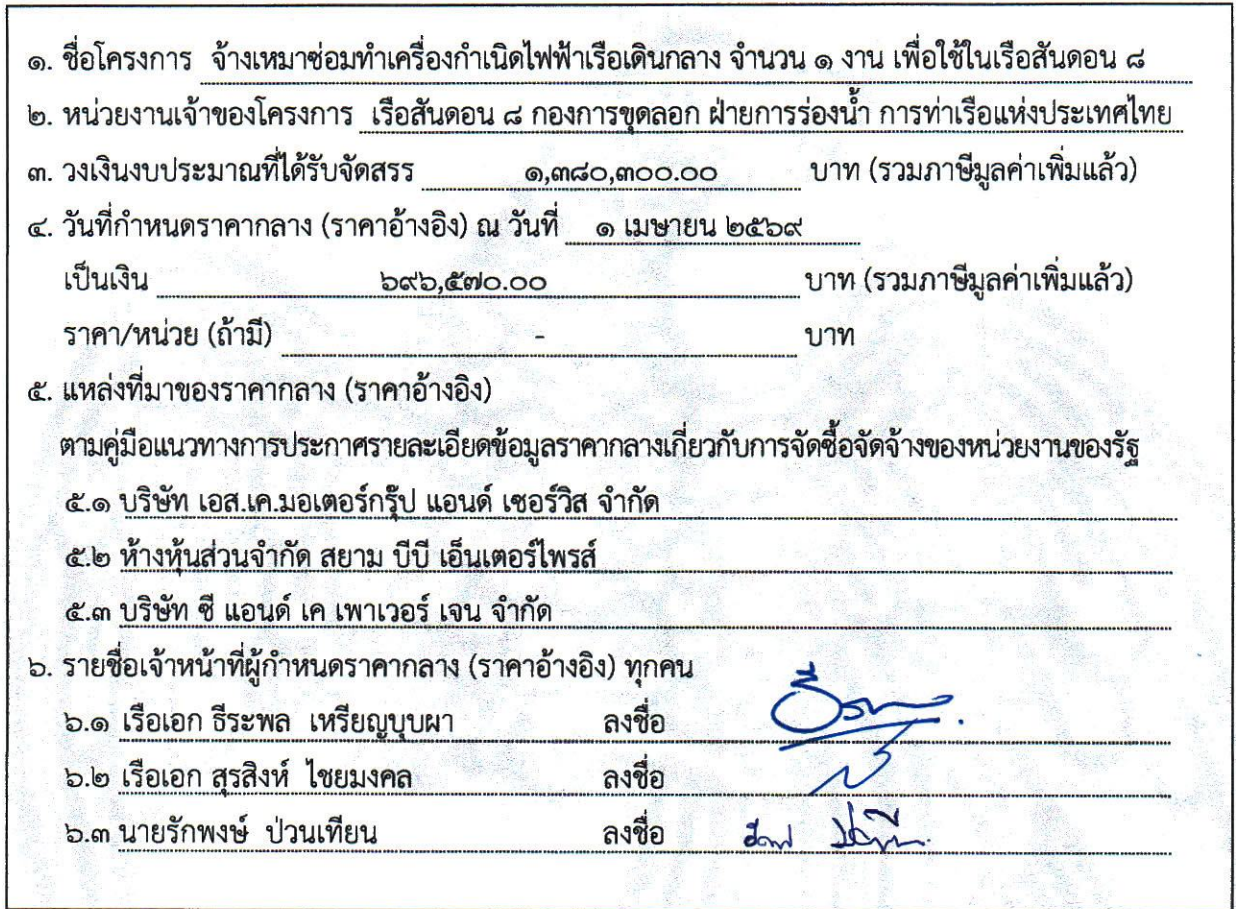 ๑. ชื่อโครงการ จ้างเหมาซ่อมทำเครื่องกำเนิดไฟฟ้าเรือเดินกลาง จำนวน ๑ งาน เพื่อใช้ในเรือสันดอน ๘
๒. หน่วยงานเจ้าของโครงการ เรือสันดอน ๘ กองการขุดลอก ฝ่ายการร่องน้ำ การท่าเรือแห่งประเทศไทย
๓. วงเงินงบประมาณที่ได้รับจัดสรร ๑,๓๘๐,๓๐๐.๐๐ บาท (รวมภาษีมูลค่าเพิ่มแล้ว)
๔. วันที่กำหนดราคากลาง (ราคาอ้างอิง) ณ วันที่ ๑ เมษายน ๒๕๖๙
เป็นเงิน ๖๙๖,๕๗๐.๐๐ บาท (รวมภาษีมูลค่าเพิ่มแล้ว)
ราคา/หน่วย (ถ้ามี) - บาท
๕. แหล่งที่มาของราคากลาง (ราคาอ้างอิง)
ตามคู่มือแนวทางการประกาศรายละเอียดข้อมูลราคากลางเกี่ยวกับการจัดซื้อจัดจ้างของหน่วยงานของรัฐ
๕.๑ บริษัท เอส.เค.มอเตอร์กรุ๊ป แอนด์ เซอร์วิส จำกัด
๕.๒ ห้างหุ้นส่วนจำกัด สยาม บีบี เอ็นเตอร์ไพรส์
๕.๓ บริษัท ซี แอนด์ เค เพาเวอร์ เจน จำกัด
๖. รายชื่อเจ้าหน้าที่ผู้กำหนดราคากลาง (ราคาอ้างอิง) ทุกคน
๖.๑ เรือเอก ธีระพล เหรียญบุบผา ลงชื่อ
๖.๒ เรือเอก สุรสิงห์ ไชยมงคล ลงชื่อ
๖.๓ นายรักพงษ์ ป่วนเทียน ลงชื่อ